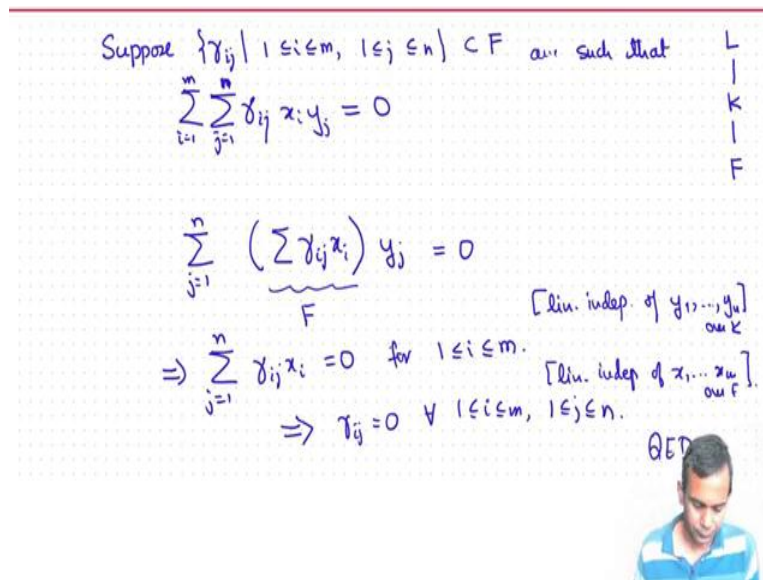 Suppose {γij | 1 ≤ i ≤ m, 1 ≤ j ≤ n} ⊂ F are such that
L
|
K
|
F
m n
∑ ∑ γij xi yj = 0
i=1 j=1
n
∑ (∑ γij xi) yj = 0
j=1
F
[lin. indep. of y1, ..., yn]
over K
n
⇒ ∑ γij xi = 0 for 1 ≤ i ≤ m.
j=1
[lin. indep of x1, ... xm].
over F
⇒ γij = 0 ∀ 1 ≤ i ≤ m, 1 ≤ j ≤ n.
QED